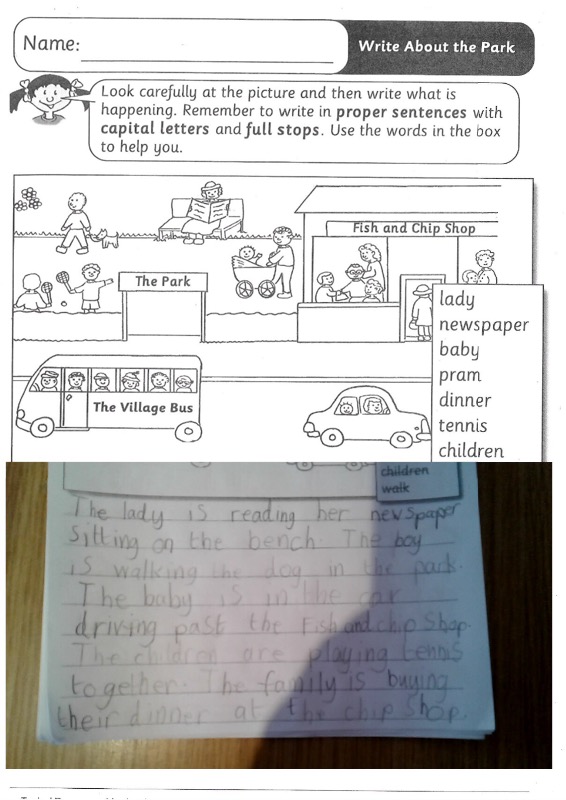 Name:
Write About the Park
Look carefully at the picture and then write what is
happening. Remember to write in proper sentences with
capital letters and full stops. Use the words in the box
to help you.
Fish and Chip Shop
The Park
The Village Bus
lady
newspaper
baby
pram
dinner
tennis
children
children
walk
The lady is reading her newspaper
sitting on the bench. The boy
is walking the dog in the park.
The baby is in the car
driving past the Fish and chip Shop.
The children are playing tennis
together. The family is buying
their dinner at the chip Shop.